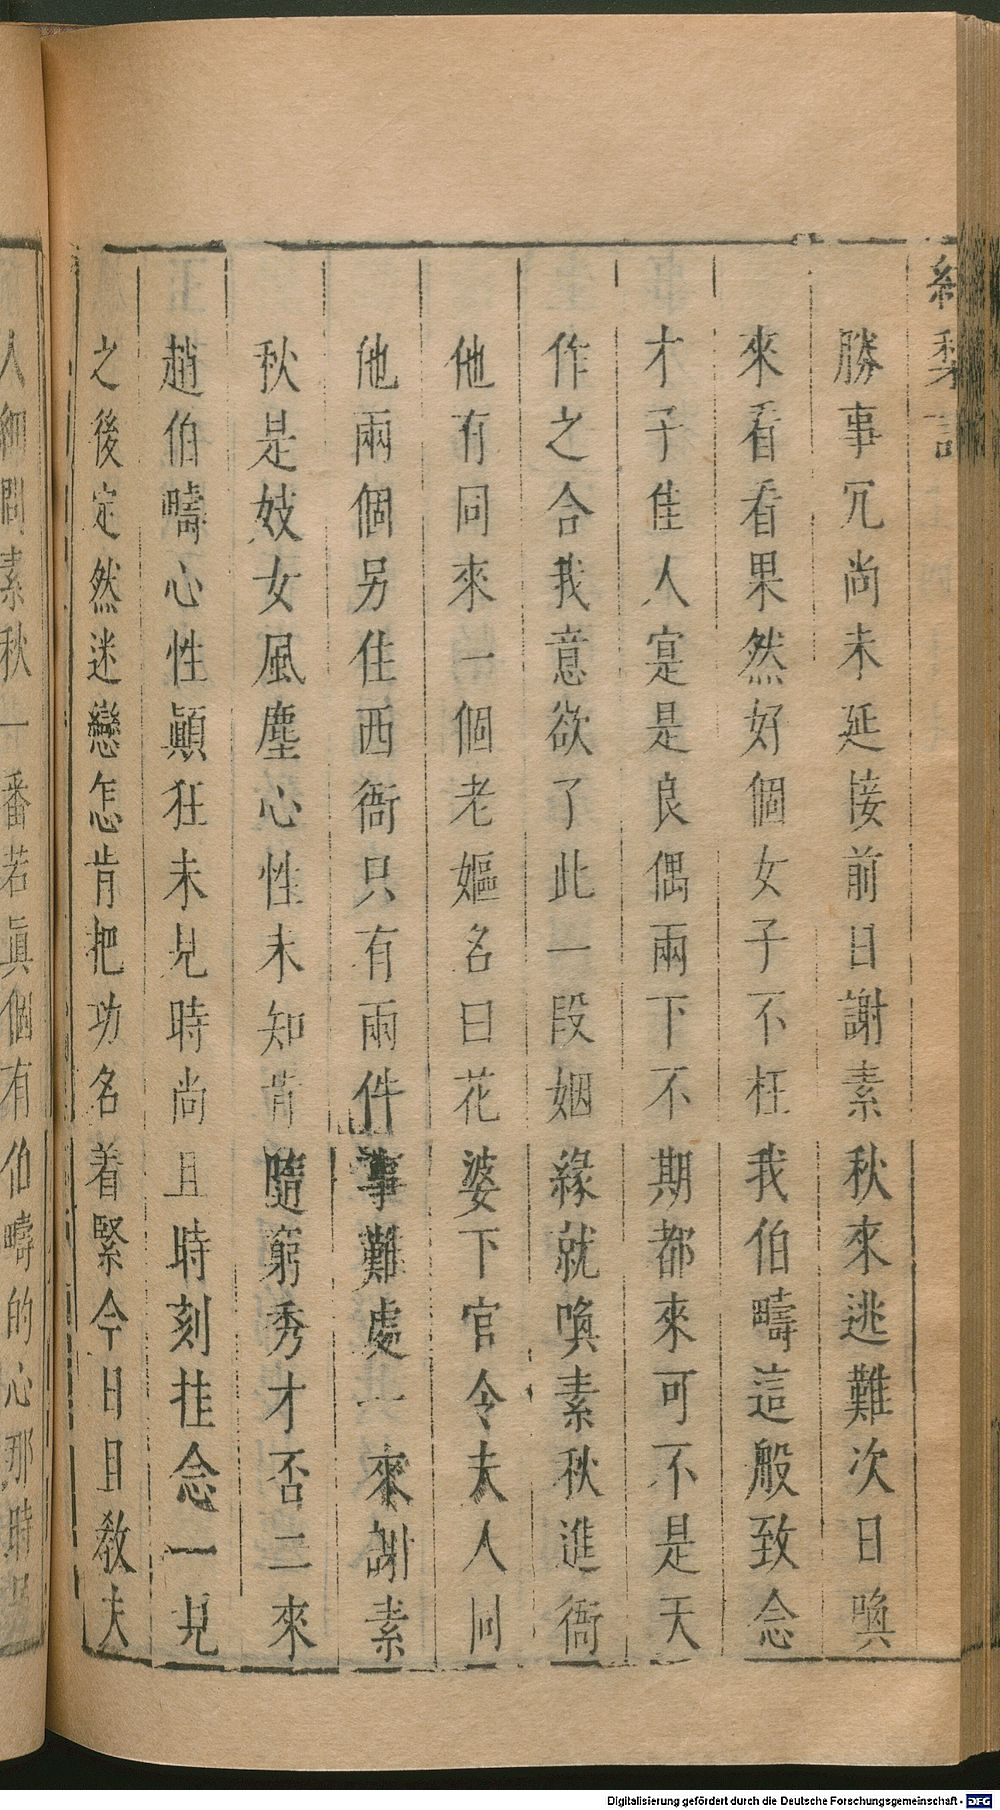 紅梨記
勝事冗尚未延接前日謝素秋來逃難次日喚
來看看果然好個女子不枉我伯疇這般致念
才子佳人寔是良偶兩下不期都來可不是天
作之合我意欲了此一段姻緣就喚素秋進衙
他有同來一個老嫗名曰花婆下官令夫人同
他兩個另住西衙只有兩件事難處一來謝素
秋是妓女風塵心性未知肯隨窮秀才否二來
趙伯疇心性顛狂未見時尚且時刻挂念一見
之後定然迷戀怎肯把功名着緊今日且教夫
人細問素秋一番若真個有伯疇的心那時
Digitalisierung gefördert durch die Deutsche Forschungsgemeinschaft - DFG